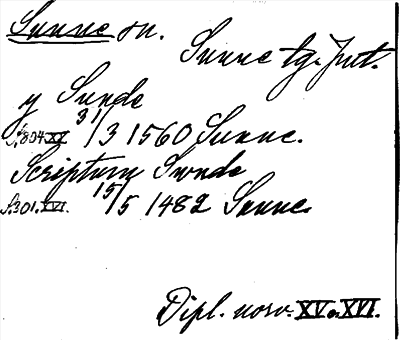 Sunne sn.
Sunne tg. Jut.
y Sunde
S.804.XV. 31/3 1560 Sunne.
Scriptum Swnde
S.301.XVI. 15/5 1482 Sunne.
Dipl. norv. XV o. XVI.